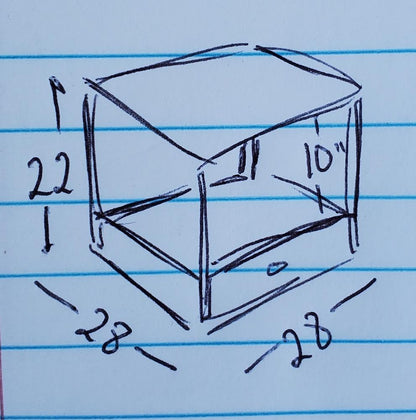 10"
22
28
28